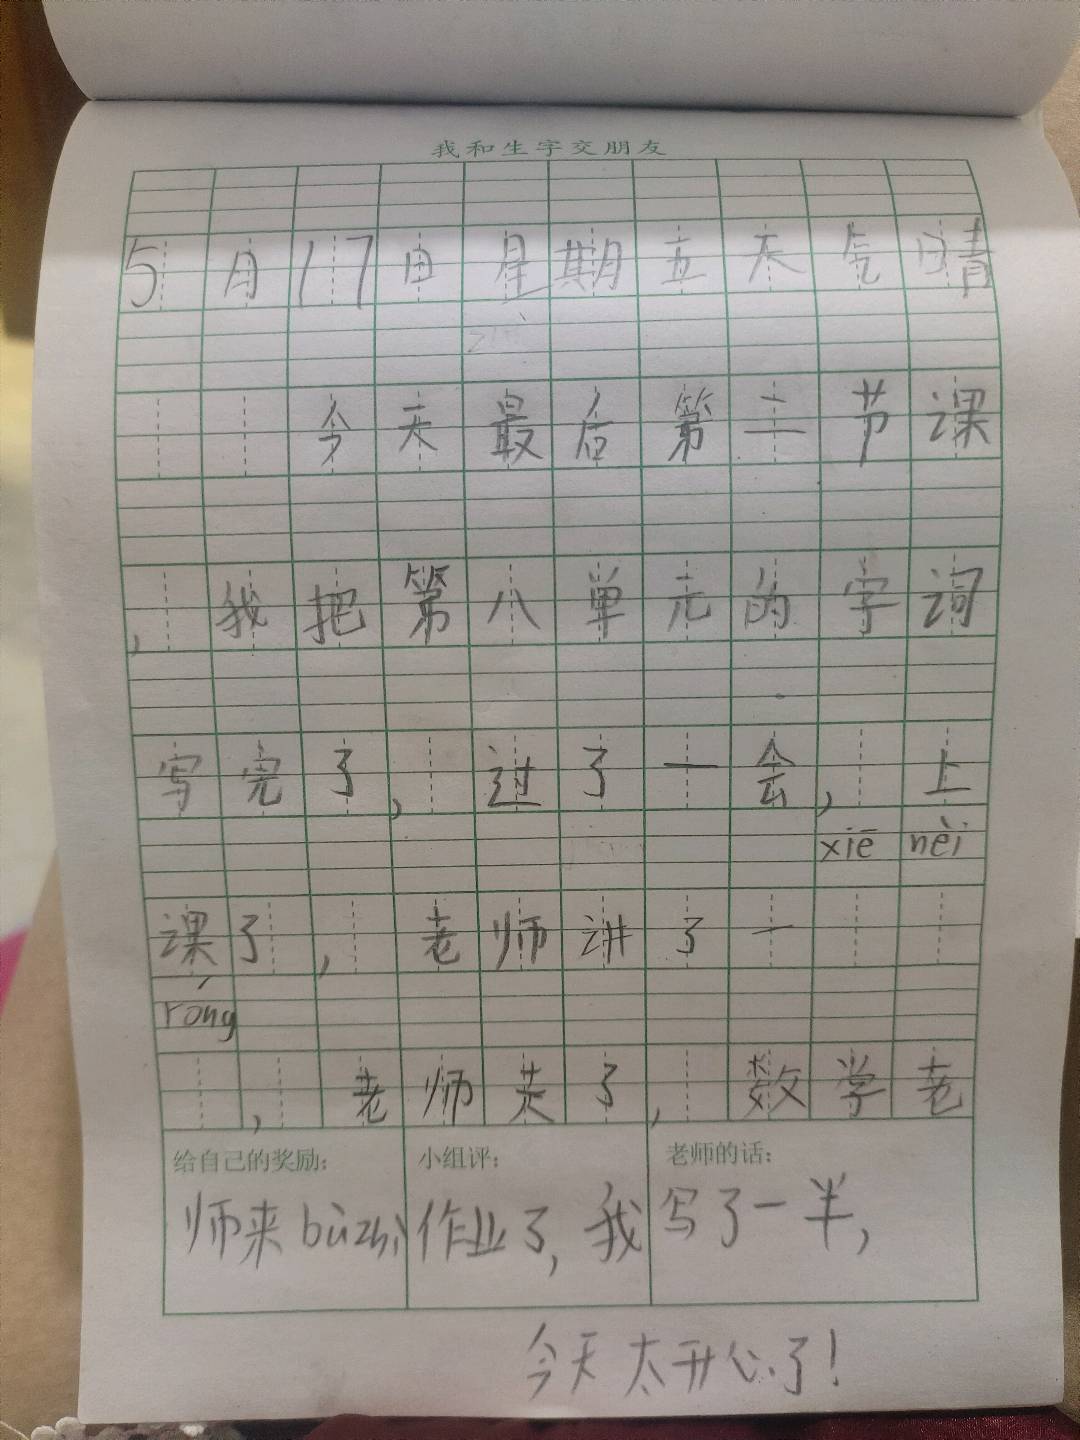 我和生字交朋友
5月17日星期五天气晴
今天最后第二节课
，我把第八单元的字词
写完了，过了一会，上
xiē nèi
课了，老师讲了一
róng
，老师走了，数学老
给自己的奖励： 小组评： 老师的话：
师来bùzhì作业了，我写了一半，
今天太开心了！